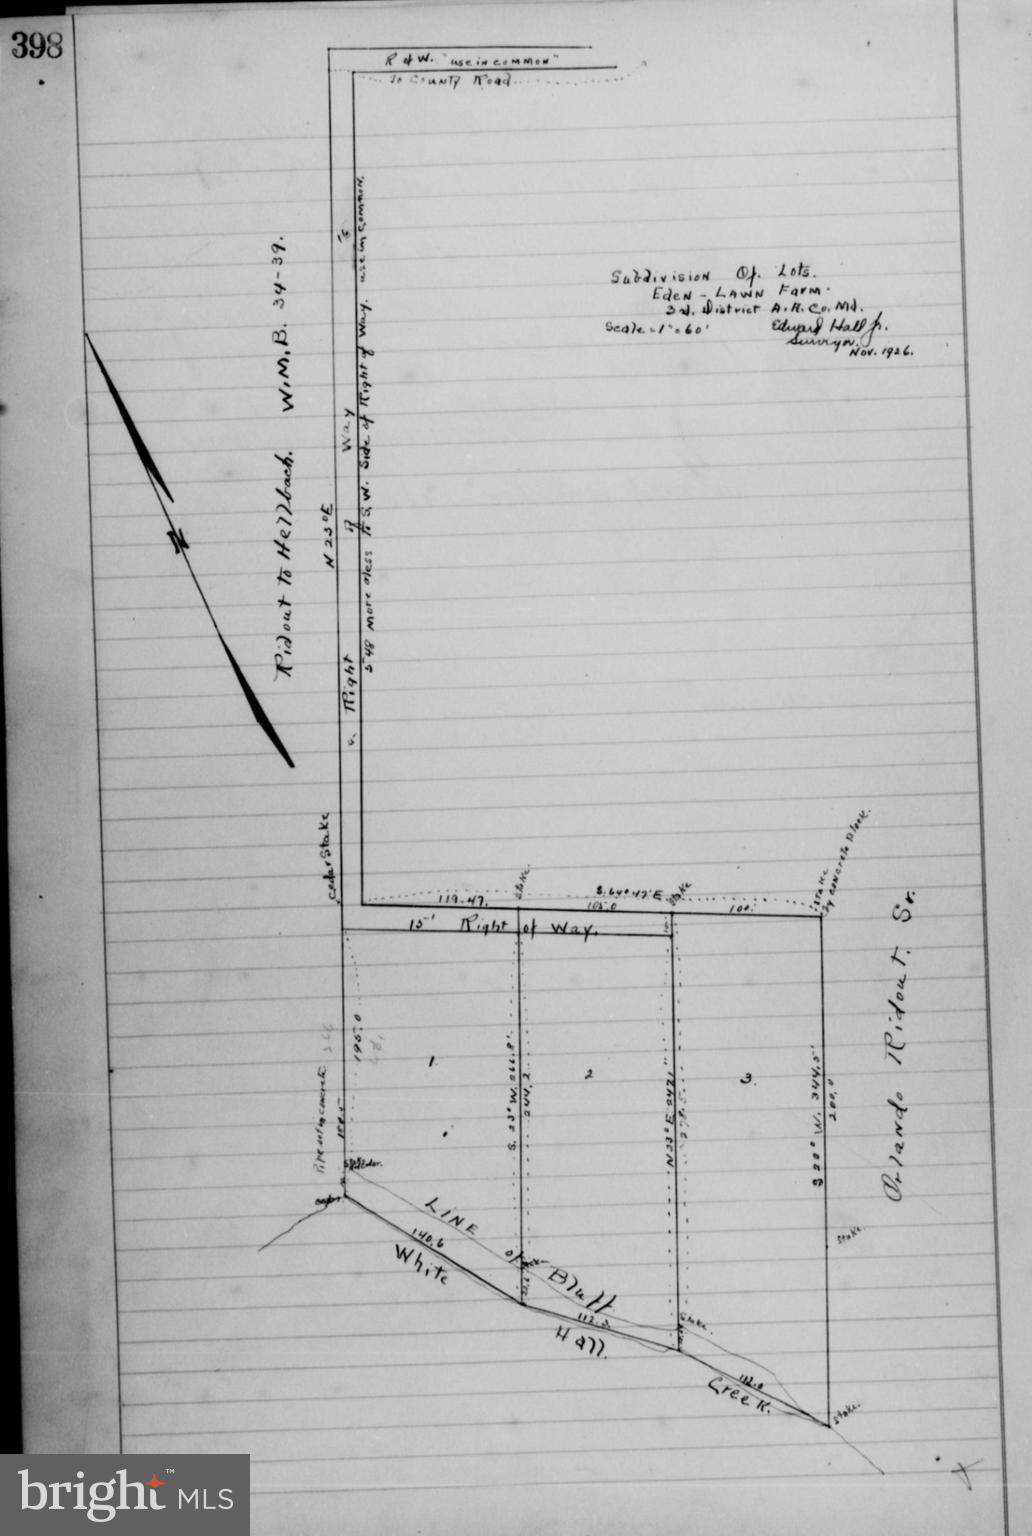 398
R of W. "use in common"
To County Road
Subdivision Of Lots.
Eden - Lawn Farm.
3rd. District A.A. Co. Md.
Scale = 1" = 60'
Edward Hall Jr.
Surveyor.
Nov. 1926.
Ridout to Hellbach. W.M.B. 34-39.
N
N 23° E
Right of Way
548 more or less to S.W. Side of Right of Way. use in common.
cedar Stake
Stake
S. 64° 47' E
Stake
Stake
by concrete Block.
119.47.
105.0
100.
15' Right of Way.
Orlando Ridout. Sr.
195.0
Pipe set in concrete
1
2
3
S. 23° W. 266.8'
244.2
N 23° E
278.5
S 20° W. 344.5'
200.0
Stake
Line of Bluff
140.6
112.3
112.0
White Hall Creek.
Stake.
Stake.
bright MLS